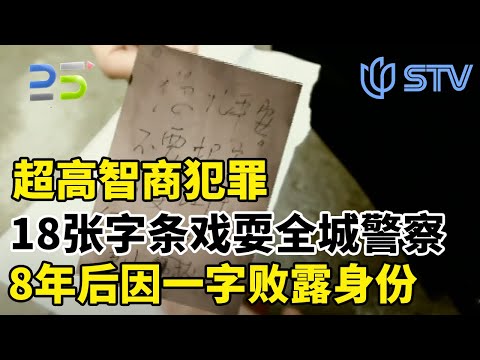 25 STV
不要
超高智商犯罪
18张字条戏耍全城警察
8年后因一字败露身份